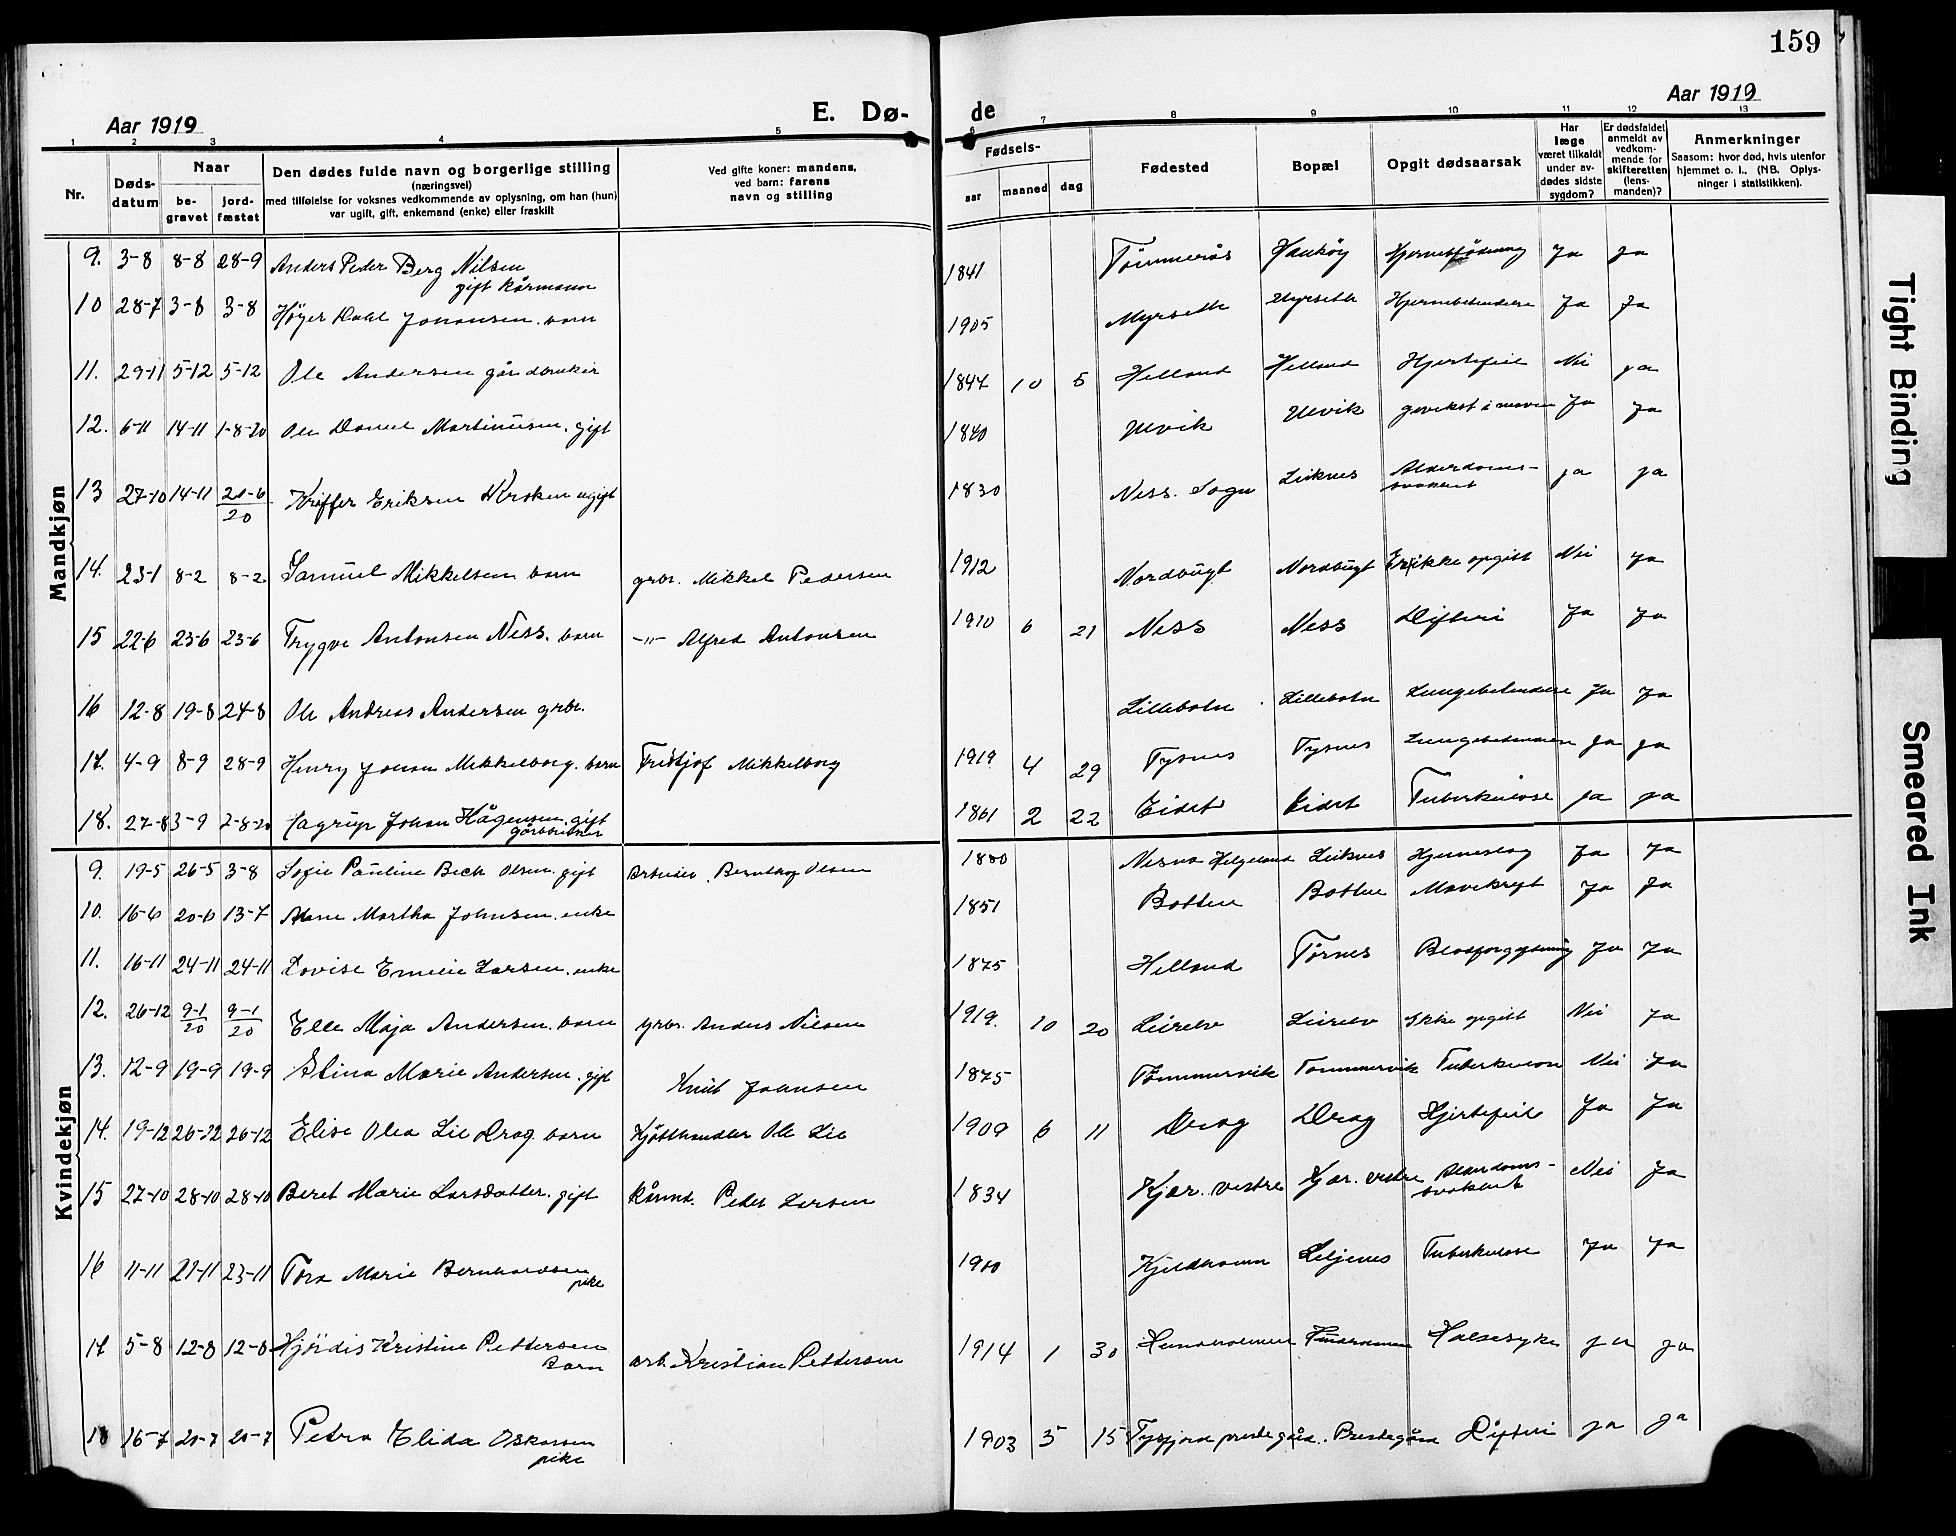 159
Aar 1919 E. Dø- de Aar 1919
1 2 3 4 5 6 7 8 9 10 11 12 13
Nr. Døds-datum Naar be-gravet jord-fæstet Den dødes fulde navn og borgerlige stilling (næringsvei) med tilføielse for voksnes vedkommende av oplysning, om han (hun) var ugift, gift, enkemand (enke) eller fraskilt Ved gifte koner: mandens, ved barn: farens navn og stilling Fødsels- aar maaned dag Fødested Bopæl Opgit dødsaarsak Har læge været tilkaldt under av-dødes sidste sygdom? Er dødsfaldet anmeldt av vedkom-mende for skifteretten (lens-manden)? Anmerkninger Saasom: hvor død, hvis utenfor hjemmet o. l., (NB. Oplys-ninger i statistikken).
Mandkjøn
9. 3-8 8-8 28-9 Anders Peder Berg Nilsen gift kårmann 1841 Tømmerås Haukøy Ja Ja
10 28-7 3-8 3-8 Høyer Dahl Johansen. barn 1905 Myrseth Myrseth Hjernebetendelse Ja Ja
11. 29-11 5-12 5-12 Ole Andersen gårdbruker 1847 10 5 Helland Helland Hjertefeil Nei ja
12. 6-11 14-11 1-8-20 Ole Daniel Martinusen. gift 1840 Ulvik Ulvik i maven Ja Ja
13 27-10 14-11 21-6/20 Kriffer Eriksen Kroken ugift 1830 Ness. Sogn Leiknes Alderdoms-svakhet ja ja
14. 23-1 8-2 8-2 Samuel Mikkelsen barn grbr. Mikkel Pedersen 1912 Nordbugt Nordbugt Er ikke opgitt Nei ja
15 22-6 23-6 23-6 Trygve Antonsen Ness. barn -"- Alfred Antonsen 1910 6 21 Ness Ness Difteri Ja Ja
16 12-8 19-8 24-8 Ole Andreas Andersen grbr. Lillebotn Lillebotn Lungebetendelse Ja Ja
17. 4-9 8-9 28-9 Henry Johan Mikkelborg. barn Fridtjof Mikkelborg 1919 4 29 Tysnes Tysnes Lungebetendelse Ja Ja
18. 27-8 3-9 2-8-20 Hagrup Johan Hågensen. gift gårdbruker 1861 2 22 Eidet Eidet Tuberkulose ja ja
Kvindekjøn
9. 19-5 26-5 3-8 Sofie Pauline Bech Olsen. gift Arbeider. Olsen 1880 Nesna Helgeland Leiknes Hjerneslag Ja Ja
10. 16-6 20-6 13-7 Anne Martha Johnsen. enke 1851 Botten Botten Mavekreft Ja Ja
11. 16-11 24-11 24-11 Lovise Emelie Larsen. enke 1875 Helland Tørnes Blodforgiftning Ja Ja
12. 26-12 9-1/20 9-1/20 Elle Maja Andersen. barn grbr. Anders Nilsen 1919. 10 20 Leirelv Leirelv Ikke opgitt Nei Ja
13. 12-9 19-9 19-9 Stina Marie Andersen. gift Knut Johnsen 1875 Tømmervik Tømmervik Tuberkulose Nei Ja
14. 19-12 26-12 26-12 Elise Olea Lie Drag. barn Kjøtthandler Ole Lie 1909 6 11 Drag Drag Hjertefeil Ja Ja
15 27-10 28-10 28-10 Beret Marie Larsdatter. gift Kårmd. Peder Larsen 1834 Kjær. vestre Kjær. vestre Alderdoms-svakhet Nei Ja
16 11-11 21-11 23-11 Tora Marie Bernhardsen pike 1900 Kjeldhamn Liljenes Tuberkulose Ja Ja
17 5-8 12-8 12-8 Hjördis Kristine Pettersen Barn arb. Kristian Pettersen 1914 1 30 Hundholmen Halsesyke ja ja
18 16-7 20-7 20-7 Petra Elida Oskarsen pike 1903 5 15 Tysfjord prestegård. Prestegård Difteri ja ja
Tight Binding
Smeared Ink